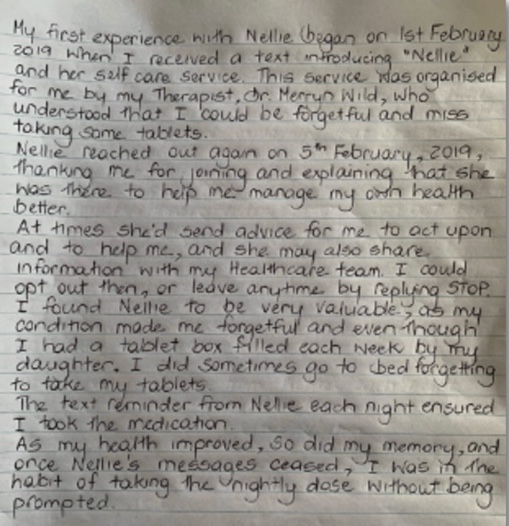 My first experience with Nellie began on 1st February
2019 when I received a text introducing "Nellie"
and her self care service. This service was organised
for me by my Therapist, Dr. Merryn Wild, who
understood that I could be forgetful and miss
taking some tablets.
Nellie reached out again on 5th February, 2019,
thanking me for joining and explaining that she
was there to help me manage my own health
better.
At times she'd send advice for me to act upon
and to help me, and she may also share
information with my Healthcare team. I could
opt out then, or leave anytime by replying STOP.
I found Nellie to be very valuable, as my
condition made me forgetful and even though
I had a tablet box filled each week by my
daughter. I did sometimes go to bed forgetting
to take my tablets.
The text reminder from Nellie each night ensured
I took the medication.
As my health improved, so did my memory, and
once Nellie's messages ceased, I was in the
habit of taking the nightly dose without being
prompted.